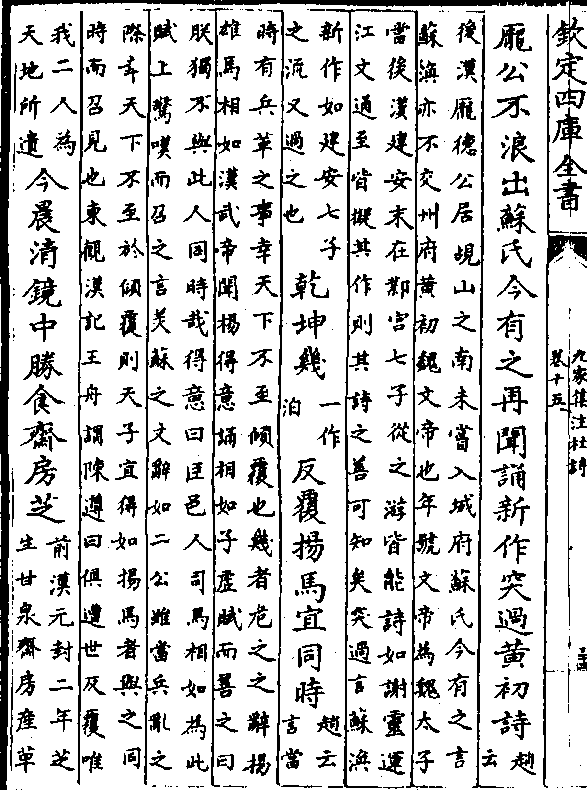 欽定四庫全書
九家集注杜詩
卷十五
龐公不浪出蘇氏今有之再聞誦新作突過黃初詩趙云
後漢龐德公居峴山之南未嘗入城府蘇氏今有之言
蘇渙亦不交州府黃初魏文帝也年號文帝為魏太子
當後漢建安末在鄴宮七子從之游皆能詩如謝靈運
江文通至皆擬其作則其詩之善可知矣突過言蘇渙
新作如建安七子
之流又過之也
乾坤幾一作泊反覆揚馬宜同時趙云言當
時有兵革之事幸天下不至傾覆也幾者危之之辭揚
雄馬相如漢武帝聞楊得意誦相如子虛賦而善之曰
朕獨不與此人同時哉得意曰臣邑人司馬相如為此
賦上驚嘆而召之言美蘇之文辭如二公雖當兵亂之
際幸天下不至於傾覆則天子宜得如揚馬者與之同
時而召見也東觀漢記王舟謂陳遵曰俱遭世反覆唯
我二人為
天地所遺
今晨清鏡中勝食齋房芝
前漢元封二年芝
生甘泉齋房產草